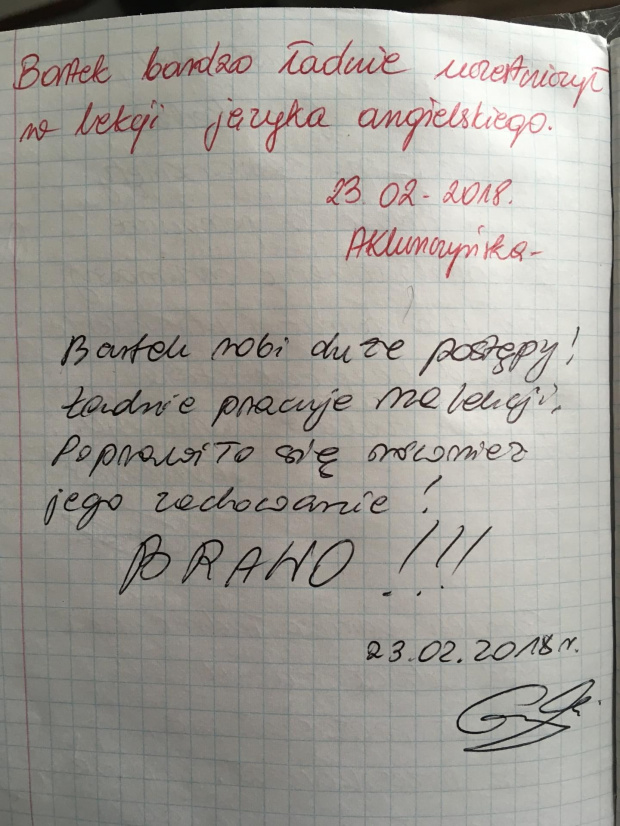 Bartek bardzo ładnie uczestniczył
w lekcji języka angielskiego.
23.02-2018.
Bartek robi duże postępy!
Ładnie pracuje na lekcji.
Poprawiło się również
jego zachowanie!
BRAWO!!!
23.02.2018r.